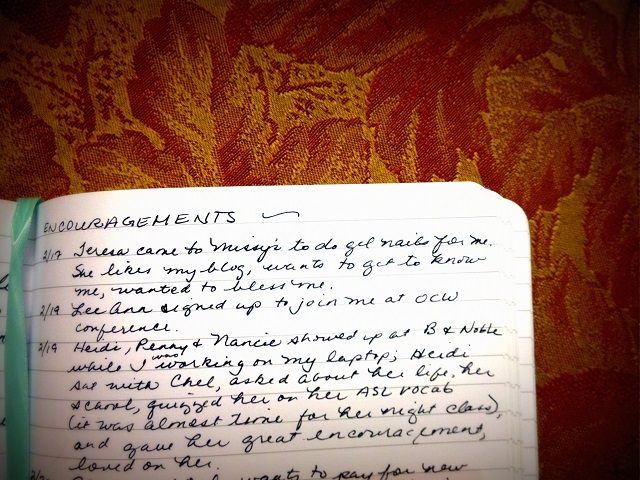 ENCOURAGEMENTS
2/17 Teresa came to Missy's to do gel nails for me.
She likes my blog, wants to get to know
me, wanted to bless me.
2/19 LeeAnn signed up to join me at OCW
conference.
2/19 Heidi, Penny & Nancie showed up at B & Noble
while I was working on my laptop; Heidi
sat with Chel, asked about her life, her
school, quizzed her on her ASL vocab
(it was almost time for her night class),
and gave her great encouragement,
loved on her.
wants to pay for new